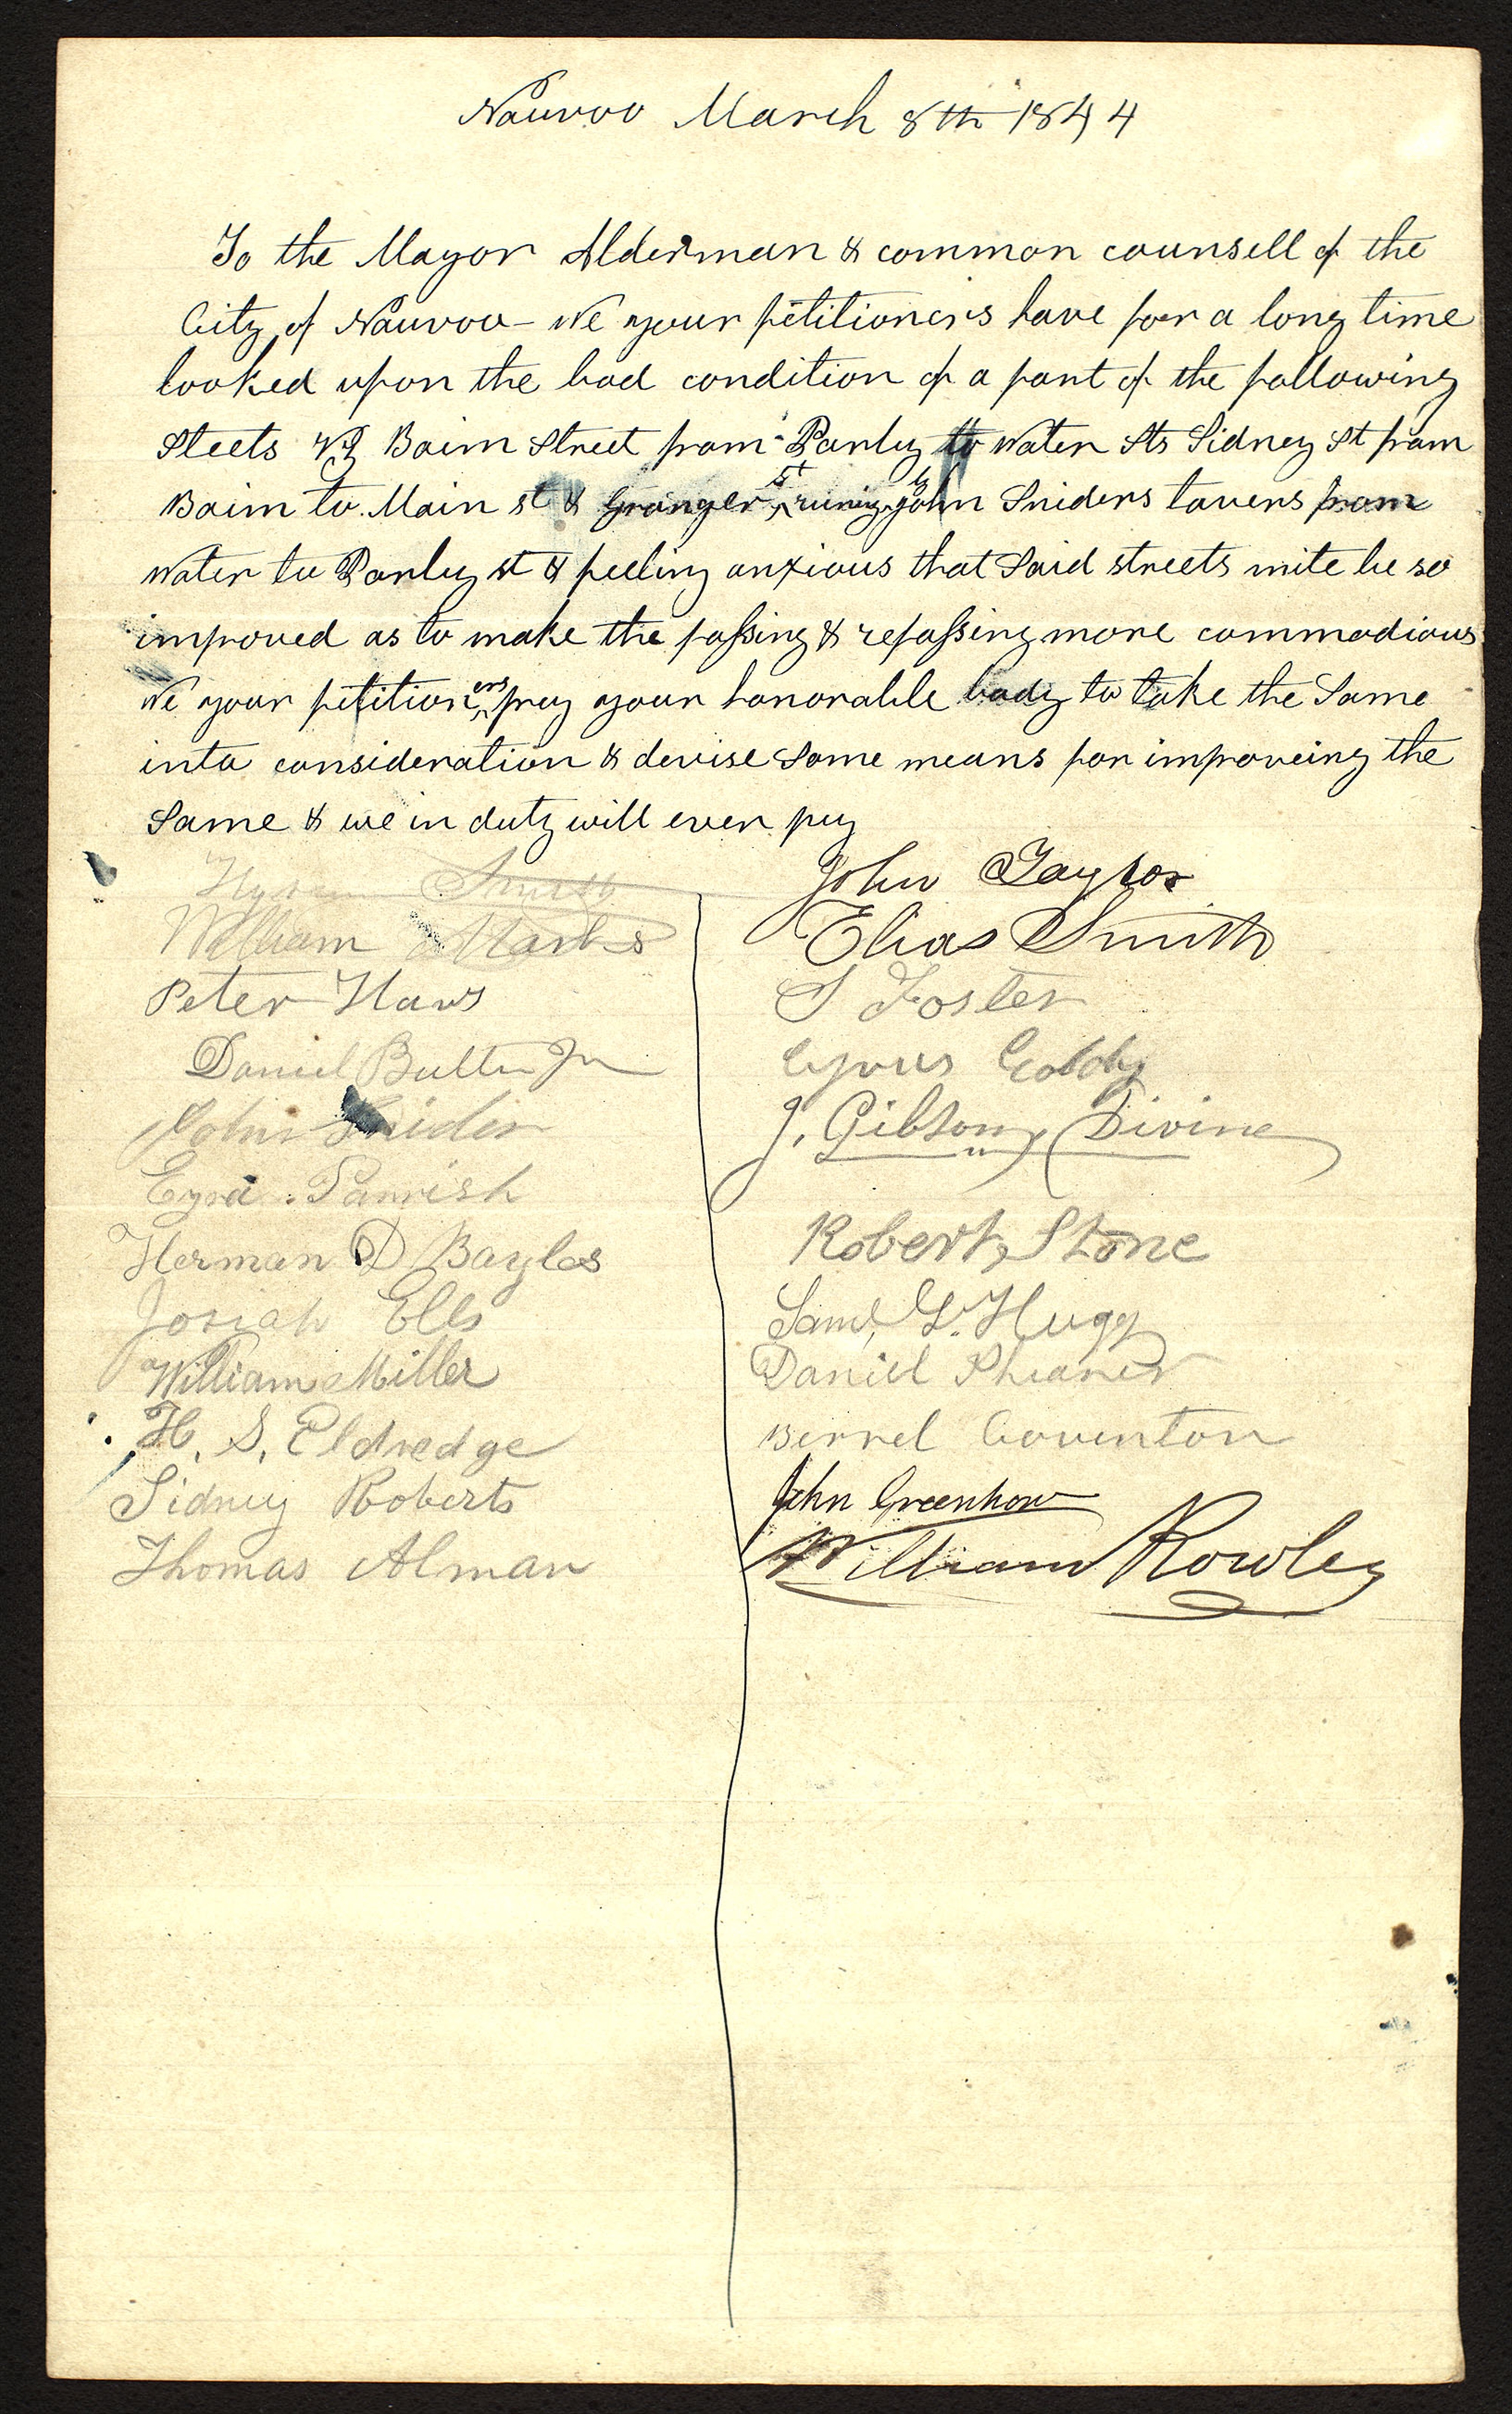 Nauvoo March 8th 1844
To the Mayor Alderman & common counsell of the
City of Nauvoo - We your petitioners have for a long time
looked upon the bad condition of a part of the following
Steets viz Baim Street from Parly to Water Sts Sidney St from
Baim to Main st & Granger st runing by John Sniders tavern from
Water to Parly st & feeling anxious that Said streets mite be so
improved as to make the passing & repassing more commodious
We your petitioners prey your honorable body to take the Same
into consideration & devise Some means for improveing the
Same & we in duty will ever prey
Hyrum Smith
William Marks
Peter Haws
Daniel Butler Jr
John Snider
Ezra Parrish
Herman D Bayles
Josiah Ells
William Miller
H. S. Eldredge
Sidney Roberts
Thomas Alman
John Taylor
Elias Smith
S Foster
Cyrus
J. Gibson Divine
Robert Stone
Saml. G. Hugg
Daniel Shearer
Berrel Covinton
John Greenhow
William Rowley